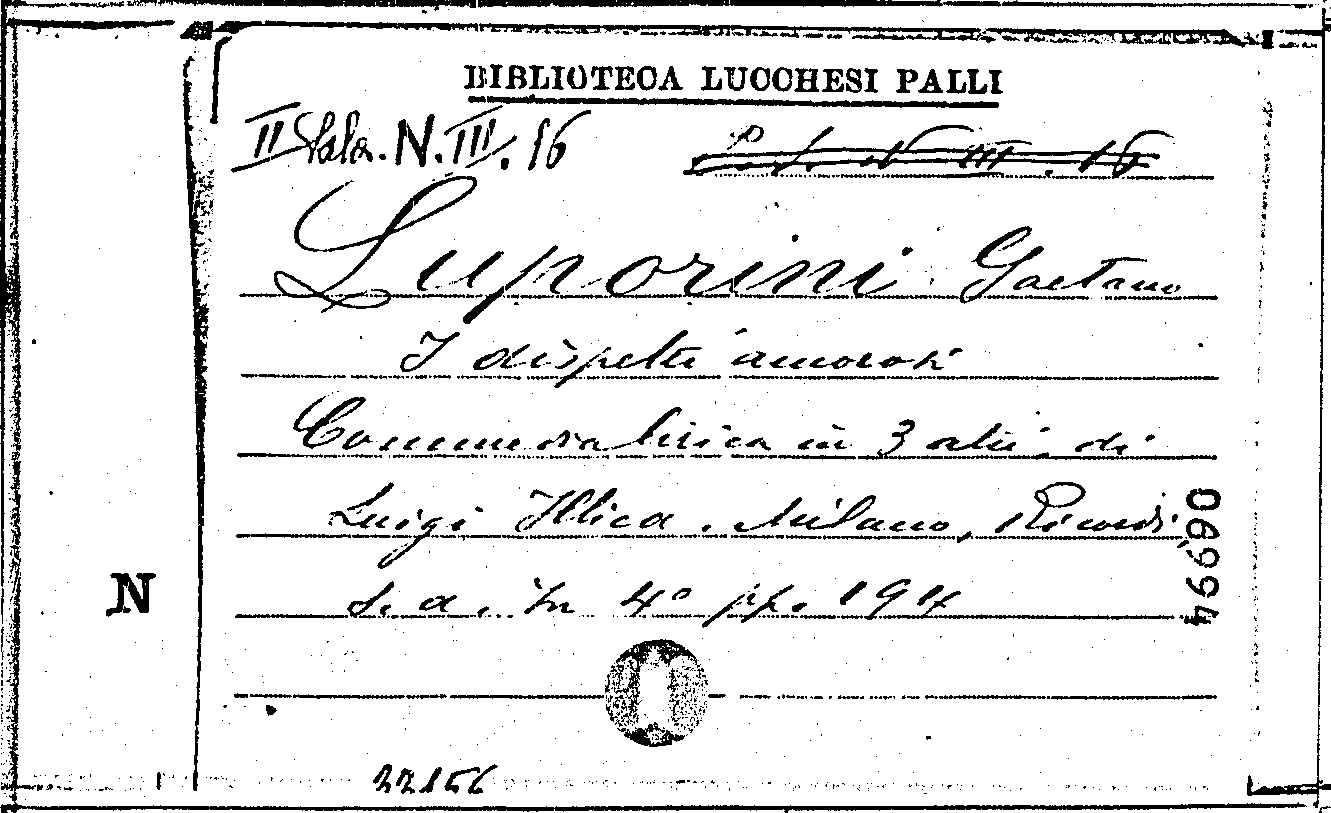 BIBLIOTECA LUCCHESI PALLI
II Sala. N. III. 16
P. S. N III. 16
Luporini Gaetano
I dispetti amorosi
Commedia lirica in 3 atti di
Luigi Illica. Milano, Ricordi
s. a. in 4° pp. 194
069994
N
22156